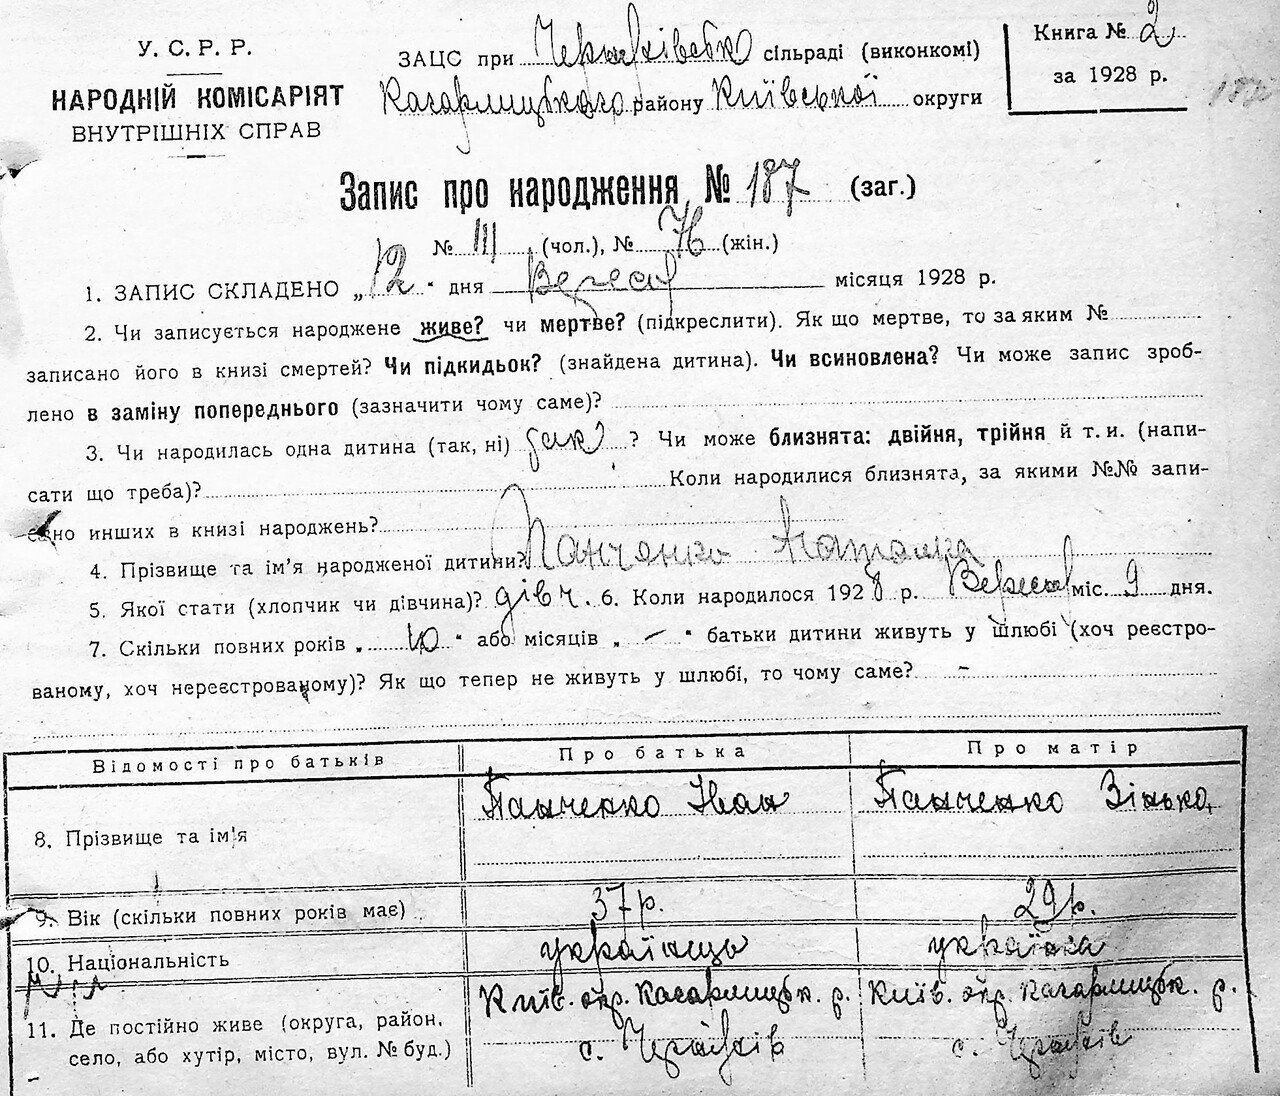 У. С. Р. Р.
НАРОДНІЙ КОМІСАРІЯТ
ВНУТРІШНІХ СПРАВ
ЗАЦС при Черняхівськ сільраді (виконкомі)
Кагарлицького району Київської округи
Книга № 2
за 1928 р.
187
Запис про народження № 187 (заг.)
№ 111 (чол.), № 76 (жін.)
1. ЗАПИС СКЛАДЕНО „12" дня Вересня місяця 1928 р.
2. Чи записується народжене живе? чи мертве? (підкреслити). Як що мертве, то за яким №
записано його в книзі смертей? Чи підкидьок? (знайдена дитина). Чи всиновлена? Чи може запис зроб-
лено в заміну попереднього (зазначити чому саме)?
3. Чи народилась одна дитина (так, ні) так ? Чи може близнята: двійня, трійня й т. и. (напи-
сати що треба)? Коли народилися близнята, за якими №№ запи-
сано инших в книзі народжень?
4. Прізвище та ім'я народженої дитини? Панченко Наталка
5. Якої стати (хлопчик чи дівчина)? дівч. 6. Коли народилося 1928 р. Вересня міс. 9 дня.
7. Скільки повних років „ 10 " або місяців „ — " батьки дитини живуть у шлюбі (хоч реєстро-
ваному, хоч нереєстрованому)? Як що тепер не живуть у шлюбі, то чому саме? –
Відомості про батьків Про батька Про матір
8. Прізвище та ім'я Панченко Іван Панченко Зінька
9. Вік (скільки повних років має) 37 р. 29 р.
10. Національність українець українка
11. Де постійно живе (округа, район, Київ. окр. Кагарлицьк. р. Київ. окр. Кагарлицьк. р.
село, або хутір, місто, вул. № буд.) с. Черняхів с. Черняхів